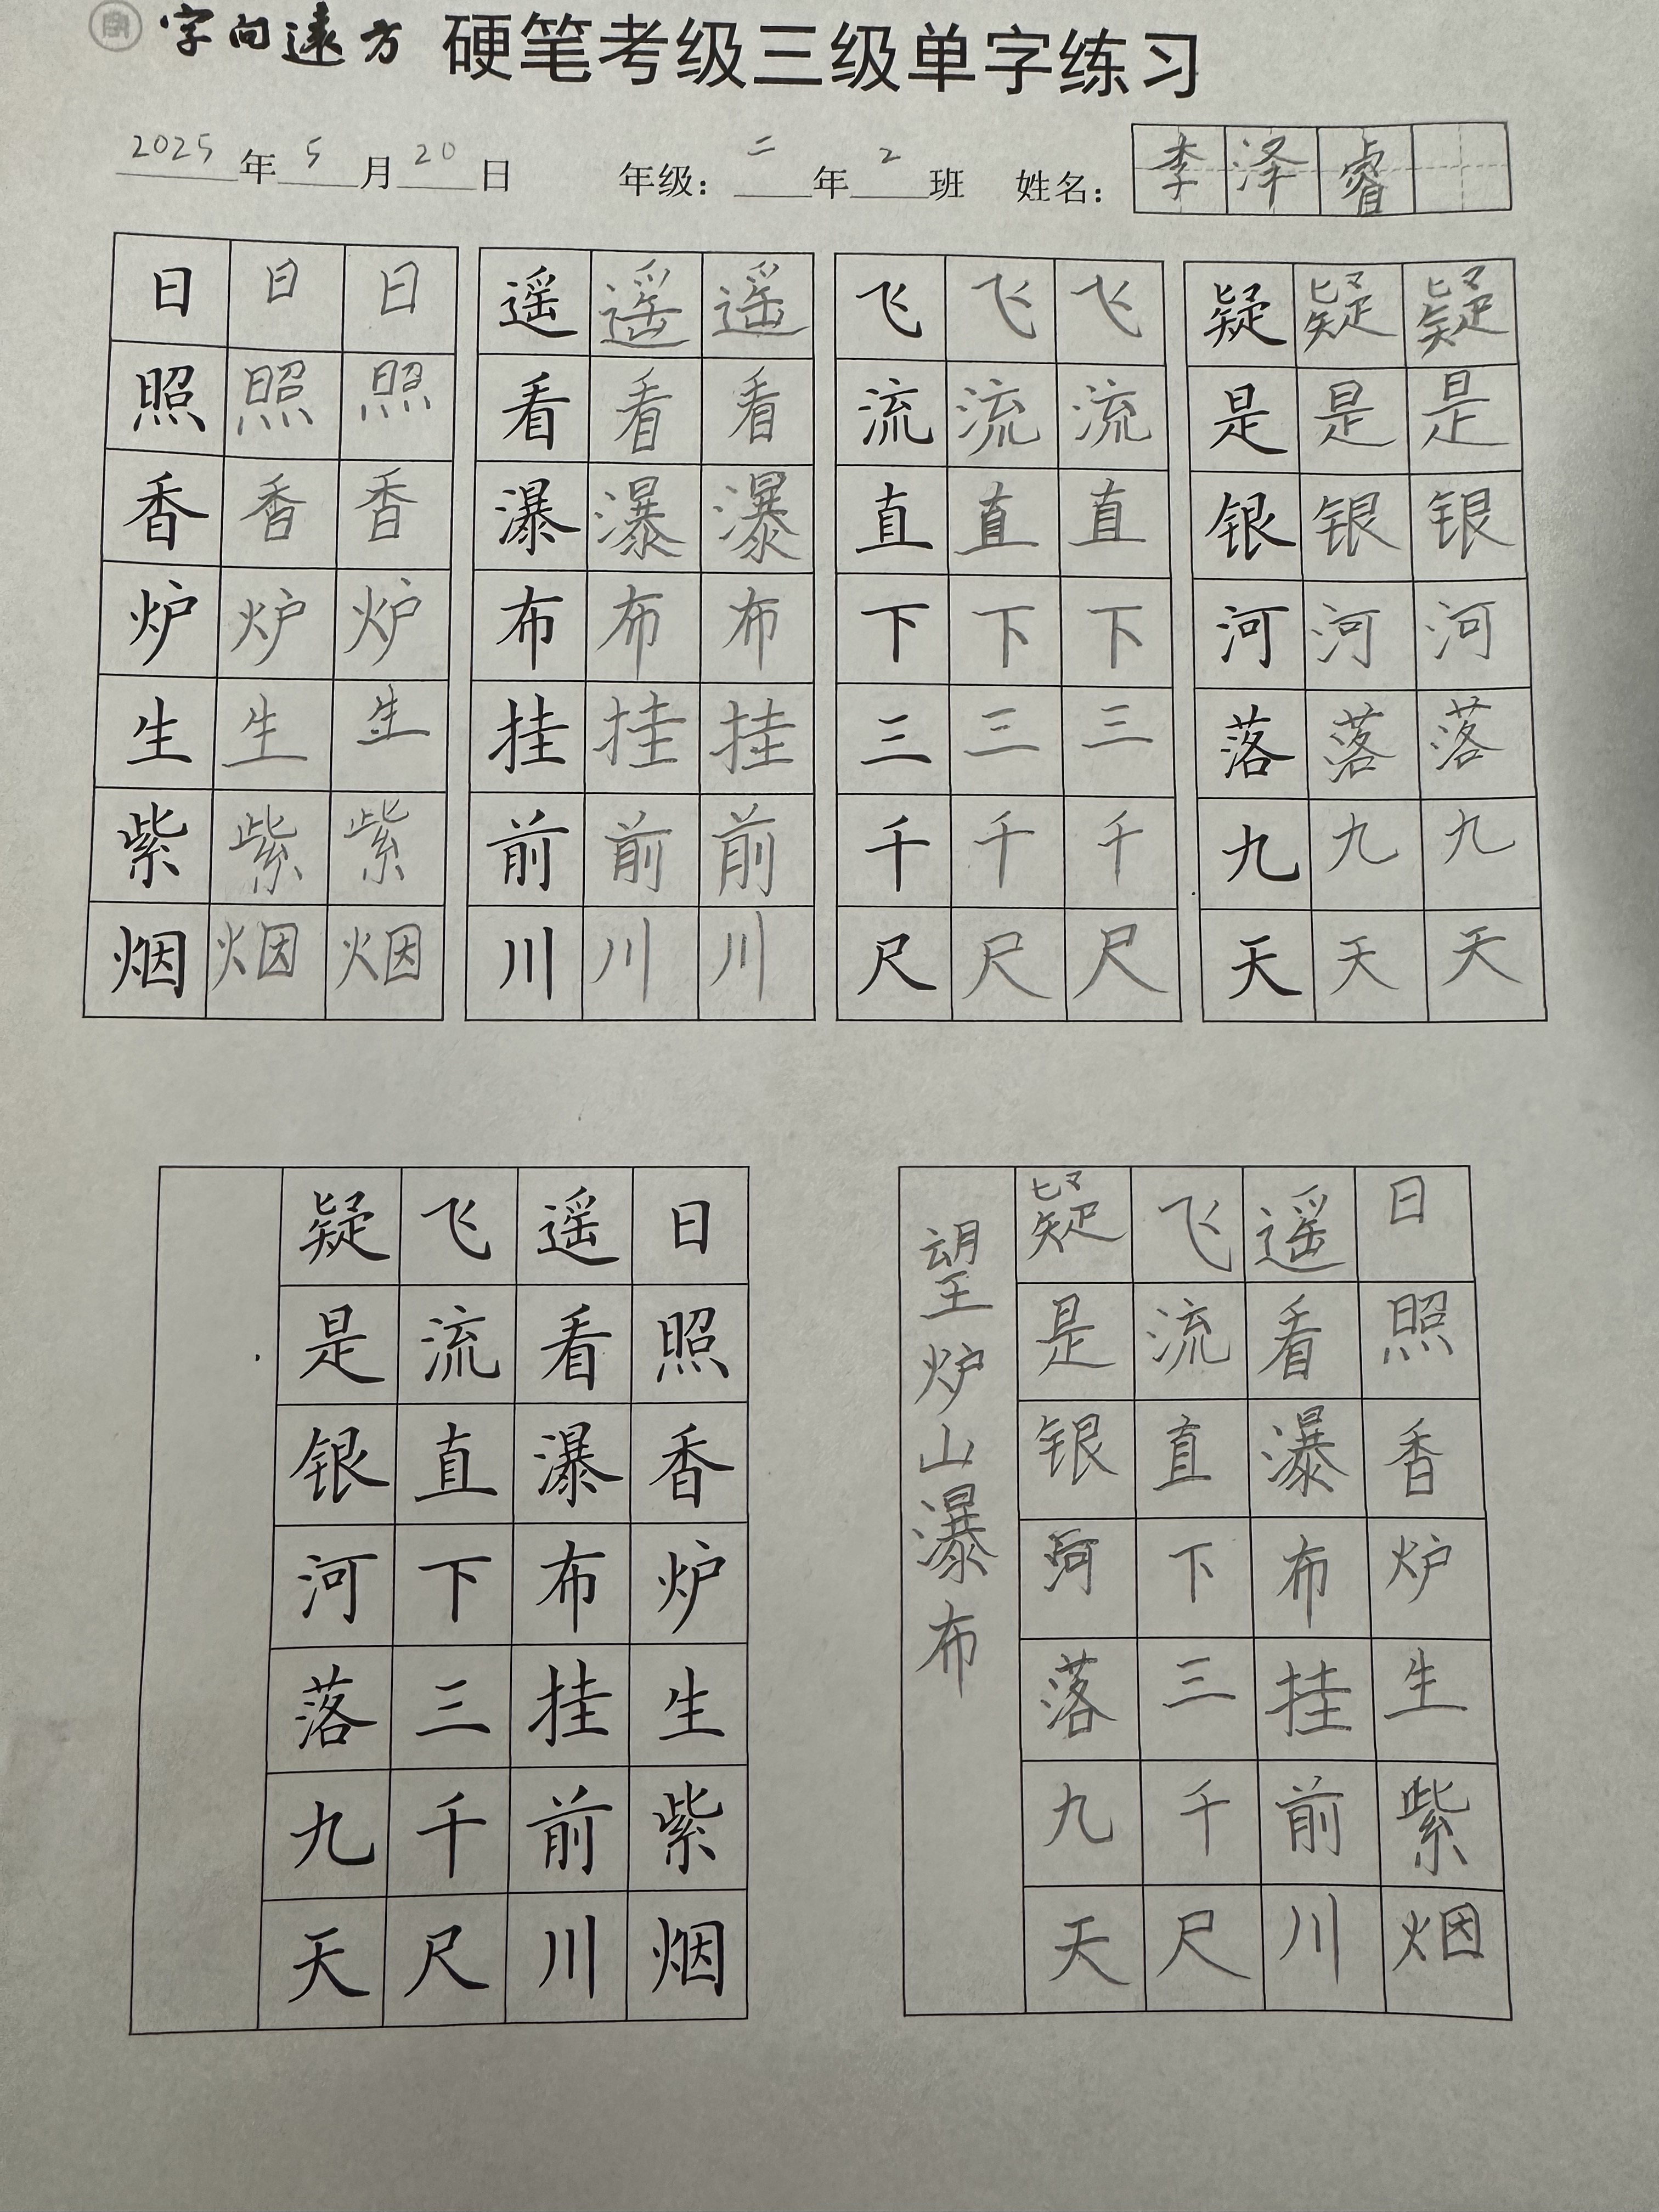 字向遠方 硬笔考级三级单字练习
2025年5月20日 年级：二年2班 姓名：李泽睿
日日日 遥遥遥 飞飞飞 疑疑疑
照照照 看看看 流流流 是是是
香香香 瀑瀑瀑 直直直 银银银
炉炉炉 布布布 下下下 河河河
生生生 挂挂挂 三三三 落落落
紫紫紫 前前前 千千千 九九九
烟烟烟 川川川 尺尺尺 天天天
日照香炉生紫烟
遥看瀑布挂前川
飞流直下三千尺
疑是银河落九天
日照香炉生紫烟
遥看瀑布挂前川
飞流直下三千尺
疑是银河落九天
望炉山瀑布